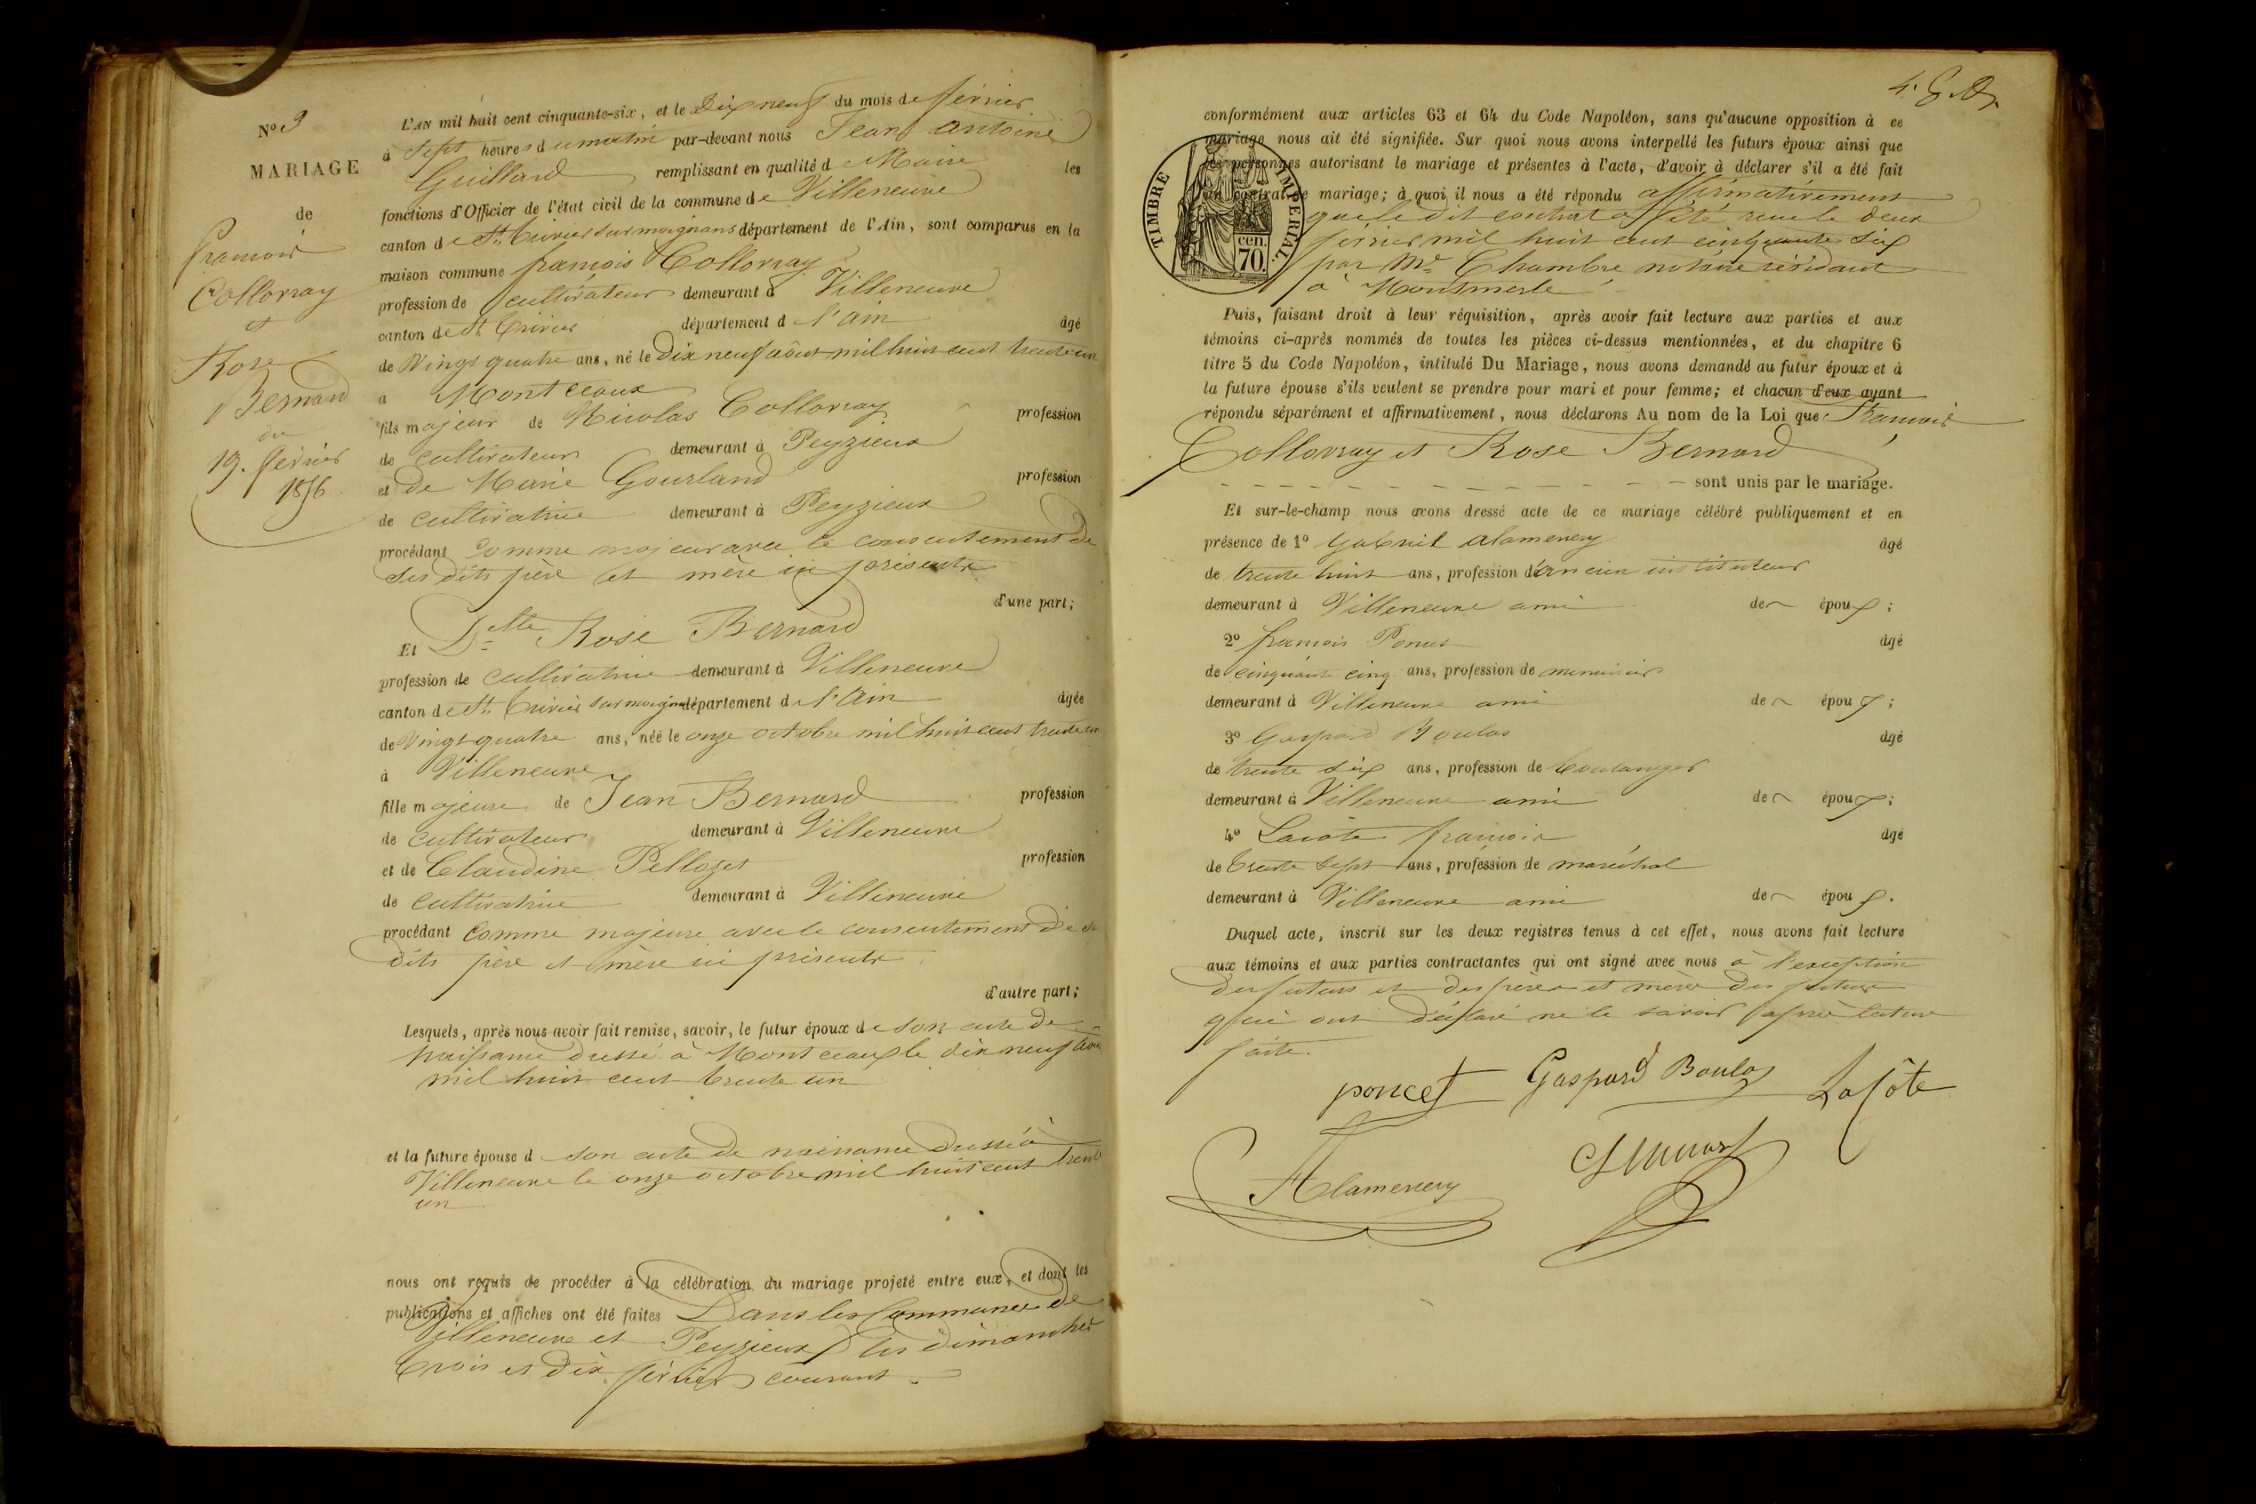 N° 9
MARIAGE
de
francois
Collovray
et
Rose
Bernard
du
19. février
1856.
L'AN mil huit cent cinquante-six, et le Dix neuf du mois de février
à Sept heures du matin par-devant nous Jean antoine
Guillard remplissant en qualité de Maire les
fonctions d'Officier de l'état civil de la commune de Villeneuve
canton de St. Trivier sur moignans département de l'Ain, sont comparus en la
maison commune françois Collovray
profession de cultivateur demeurant à Villeneuve
canton de St Trivier département de l'ain âgé
de Vingt quatre ans, né le Dix neuf août mil huit cent trente un
à Montceaux
fils majeur de Nicolas Collovray profession
de cultivateur demeurant à Peyzieux
et de Marie Gourland profession
de cultivatrice demeurant à Peyzieux
procédant comme majeur avec le consentement de
ses dits père et mère ici présents
d'une part;
Et Dlle Rose Bernard
profession de cultivatrice demeurant à Villeneuve
canton de St. Trivier sur moignans département de l'Ain âgée
de Vingt quatre ans, née le onze octobre mil huit cent trente un
à Villeneuve
fille majeure de Jean Bernard profession
de cultivateur demeurant à Villeneuve
et de Claudine Pelloset profession
de cultivatrice demeurant à Villeneuve
procédant comme majeure avec le consentement de ses
dits père et mère ici présents
d'autre part;
Lesquels, après nous avoir fait remise, savoir, le futur époux de son acte de
naissance dressé à Montceaux le dix neuf août
mil huit cent trente un
et la future épouse de son acte de naissance dressé à
Villeneuve le onze octobre mil huit cent trente
un
nous ont requis de procéder à la célébration du mariage projeté entre eux, et dont les
publications et affiches ont été faites Dans les Communes de
Villeneuve et Peyzieux les dimanches
trois et dix février courant.
conformément aux articles 63 et 64 du Code Napoléon, sans qu'aucune opposition à ce
mariage nous ait été signifiée. Sur quoi nous avons interpellé les futurs époux ainsi que
les personnes autorisant le mariage et présentes à l'acte, d'avoir à déclarer s'il a été fait
un contrat de mariage; à quoi il nous a été répondu affirmativement
que le dit contrat a été reçu le deux
février mil huit cent cinquante six
par Me. Chambre notaire résidant
à Montmerle
TIMBRE IMPERIAL.
cen.
70.
Puis, faisant droit à leur réquisition, après avoir fait lecture aux parties et aux
témoins ci-après nommés de toutes les pièces ci-dessus mentionnées, et du chapitre 6
titre 5 du Code Napoléon, intitulé Du Mariage, nous avons demandé au futur époux et à
la future épouse s'ils veulent se prendre pour mari et pour femme; et chacun d'eux ayant
répondu séparément et affirmativement, nous déclarons Au nom de la Loi que francois
Collovray et Rose Bernard
sont unis par le mariage.
Et sur-le-champ nous avons dressé acte de ce mariage célébré publiquement et en
présence de 1° Gabriel alamenery âgé
de trente huit ans, profession d'ancien instituteur
demeurant à Villeneuve ami de époux;
2° francois Poncet âgé
de cinquante cinq ans, profession de menuisier
demeurant à Villeneuve ami de époux;
3° Gaspard Boulas âgé
de trente six ans, profession de boulanger
demeurant à Villeneuve ami de époux;
4° Lacôte francois âgé
de trente sept ans, profession de maréchal
demeurant à Villeneuve ami de époux.
Duquel acte, inscrit sur les deux registres tenus à cet effet, nous avons fait lecture
aux témoins et aux parties contractantes qui ont signé avec nous à l'exception
des futurs et des pères et mères des futurs
qui ont déclaré ne le savoir après lecture
faite.
poncet Gaspard Boulas LaCôte
Alamenery